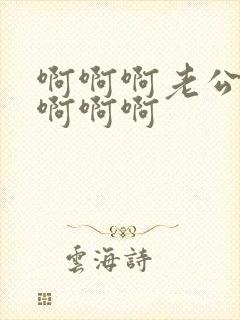 啊啊啊老公
啊啊啊
雲海詩